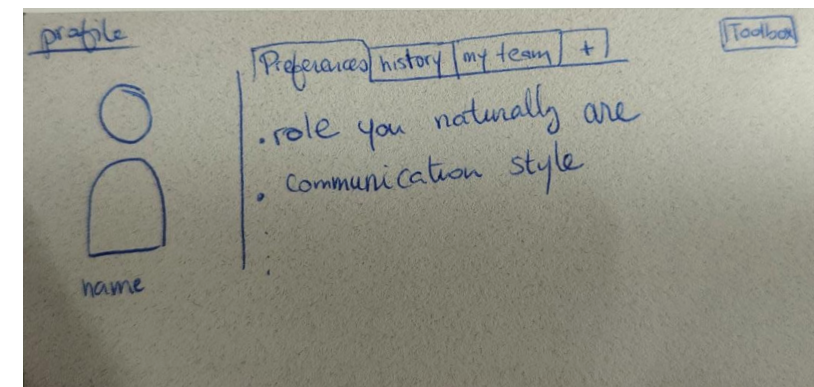 profile
Toolbox
Preferences history my team +
• role you naturally are
• communication style
name